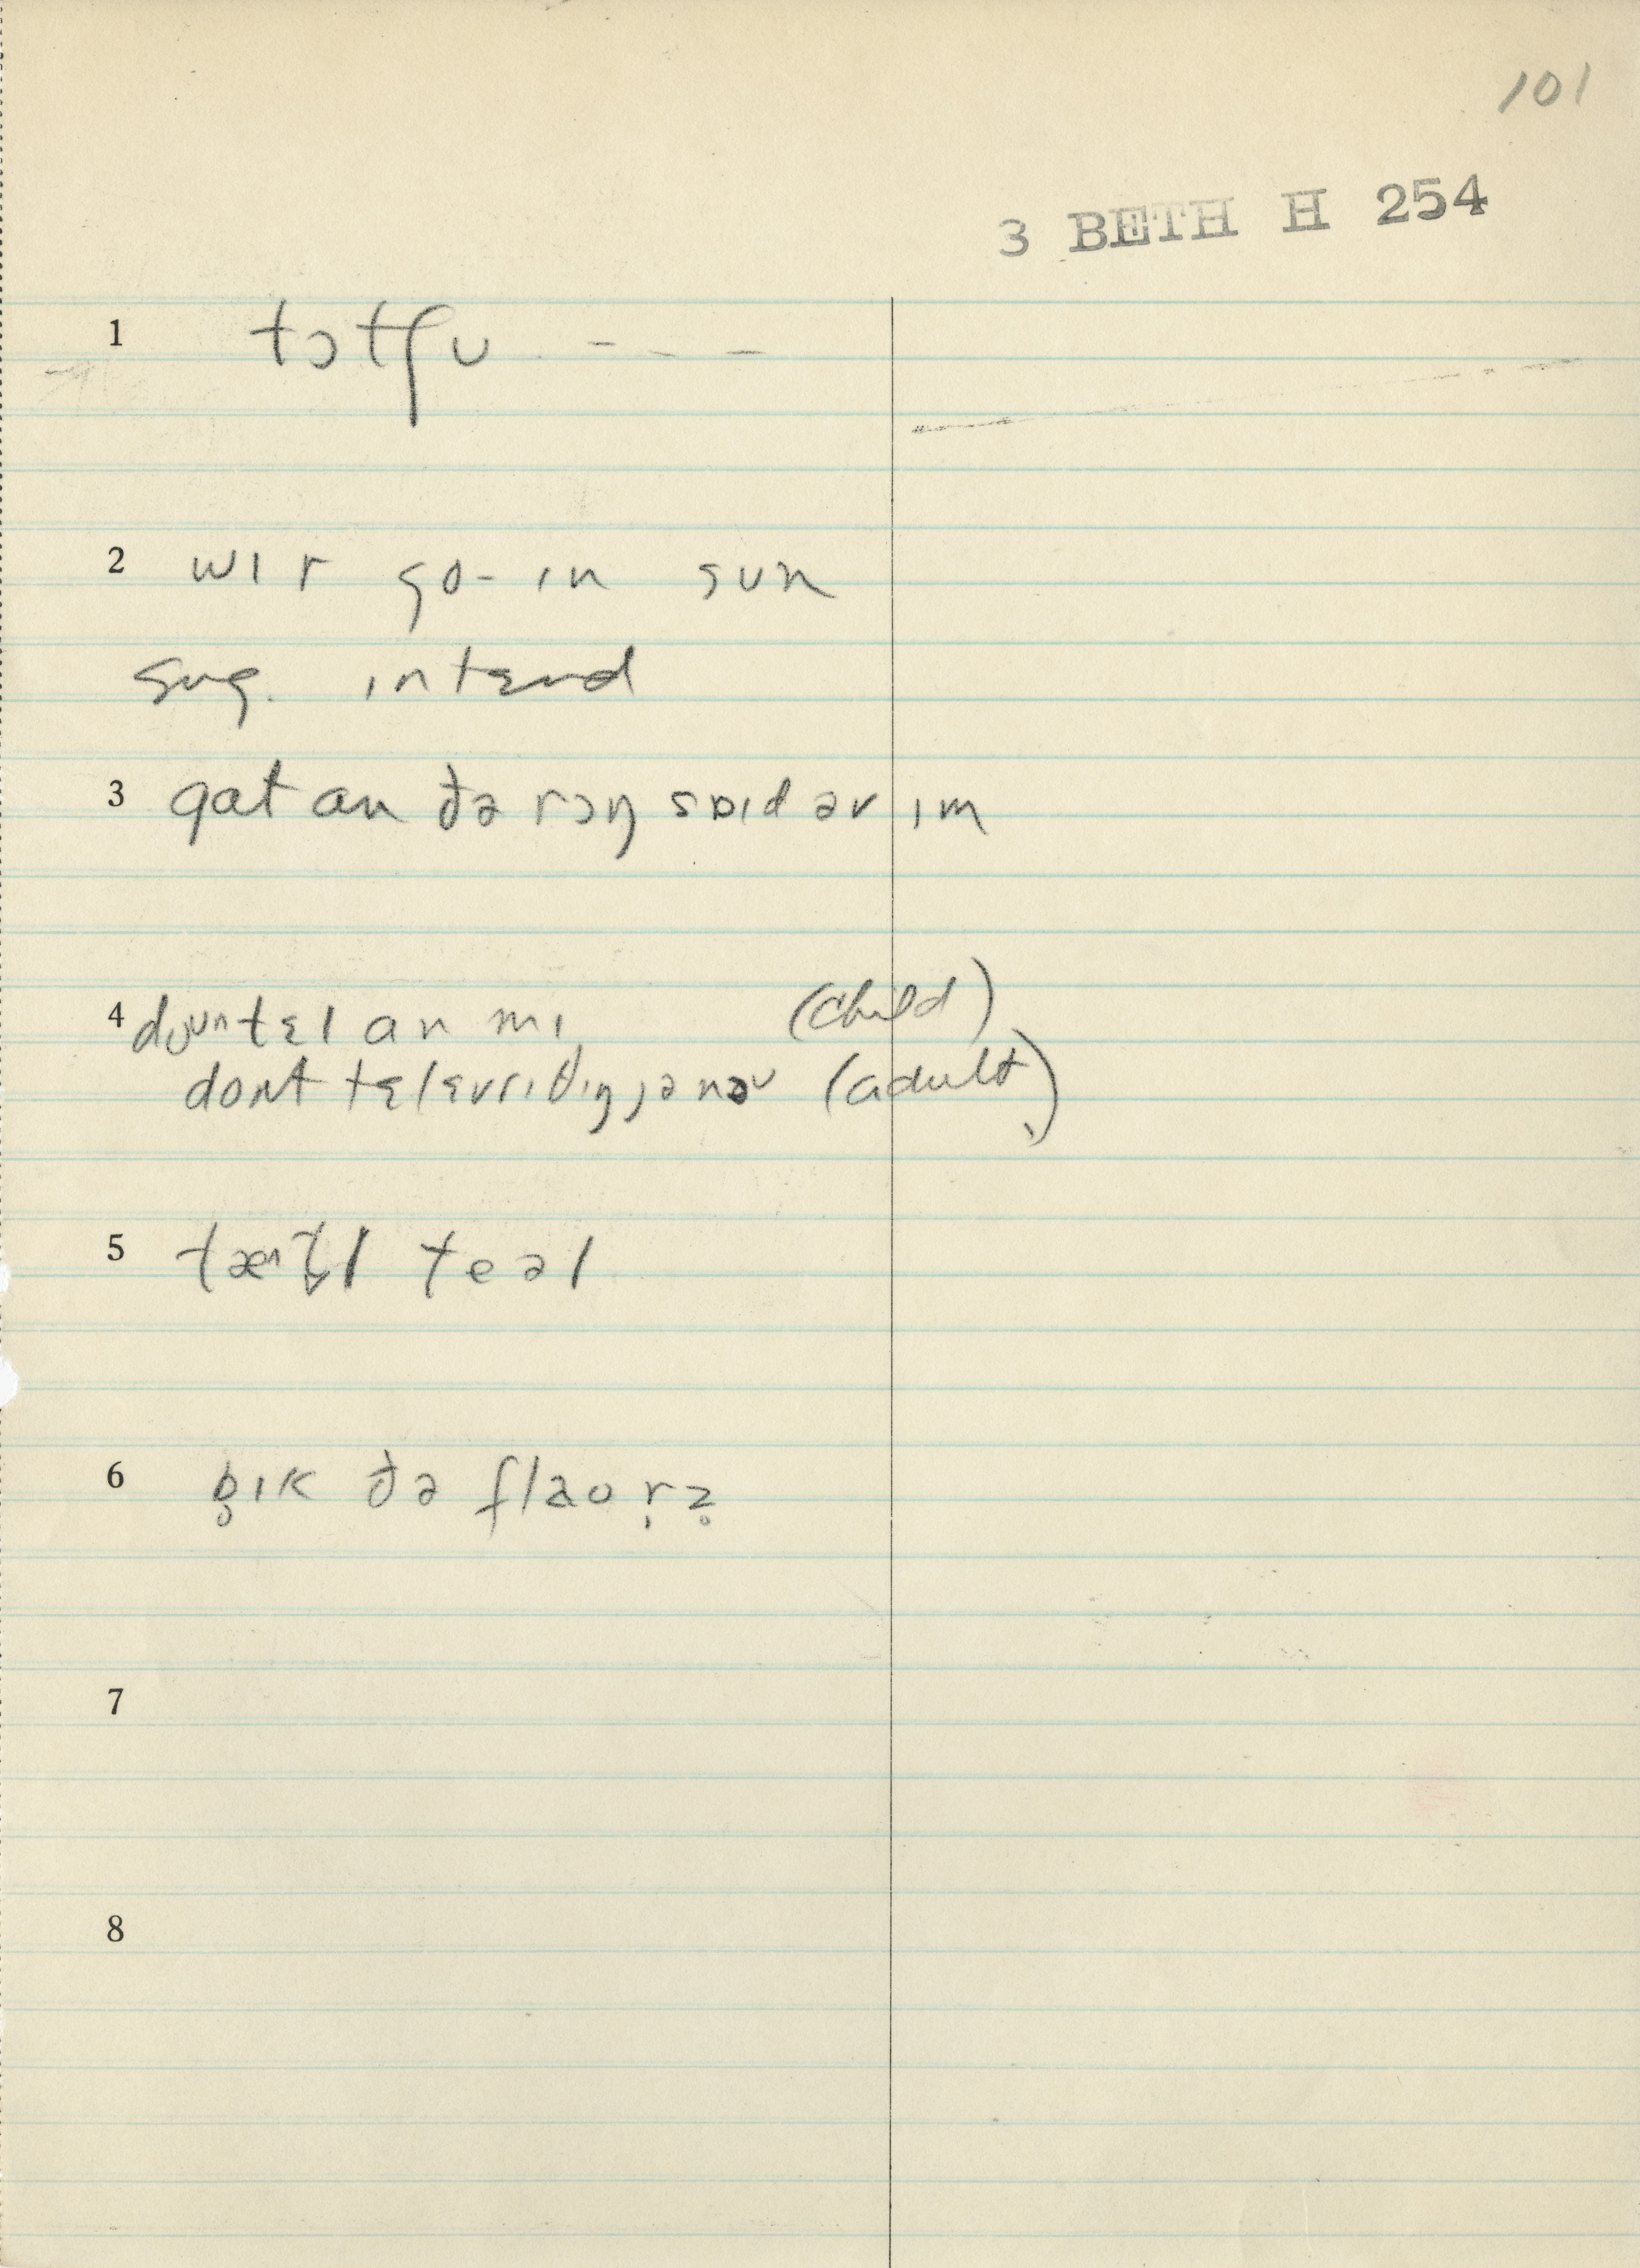 101
3 BETH H 254
1 tɔtʃu - - -
2 wɪr go-ɪn sun
sug. ɪntɛnd
3 gɑt ɑn ðə rɔŋ saɪd əv ɪm
4 dountɛl ɑn mɪ (child)
dont tɛl ɛvrɪθɪŋ jə nou (adult)
5 tæntl teəl
6 b̥ɪk ðə flaur̩z̥
7
8